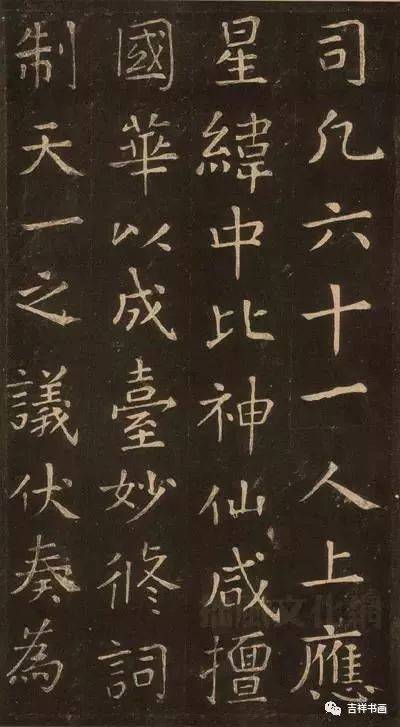 司凡六十一人上應
星緯中比神仙咸擅
國華以成臺妙修詞
制天一之議伏奏為
文化網
吉祥书画